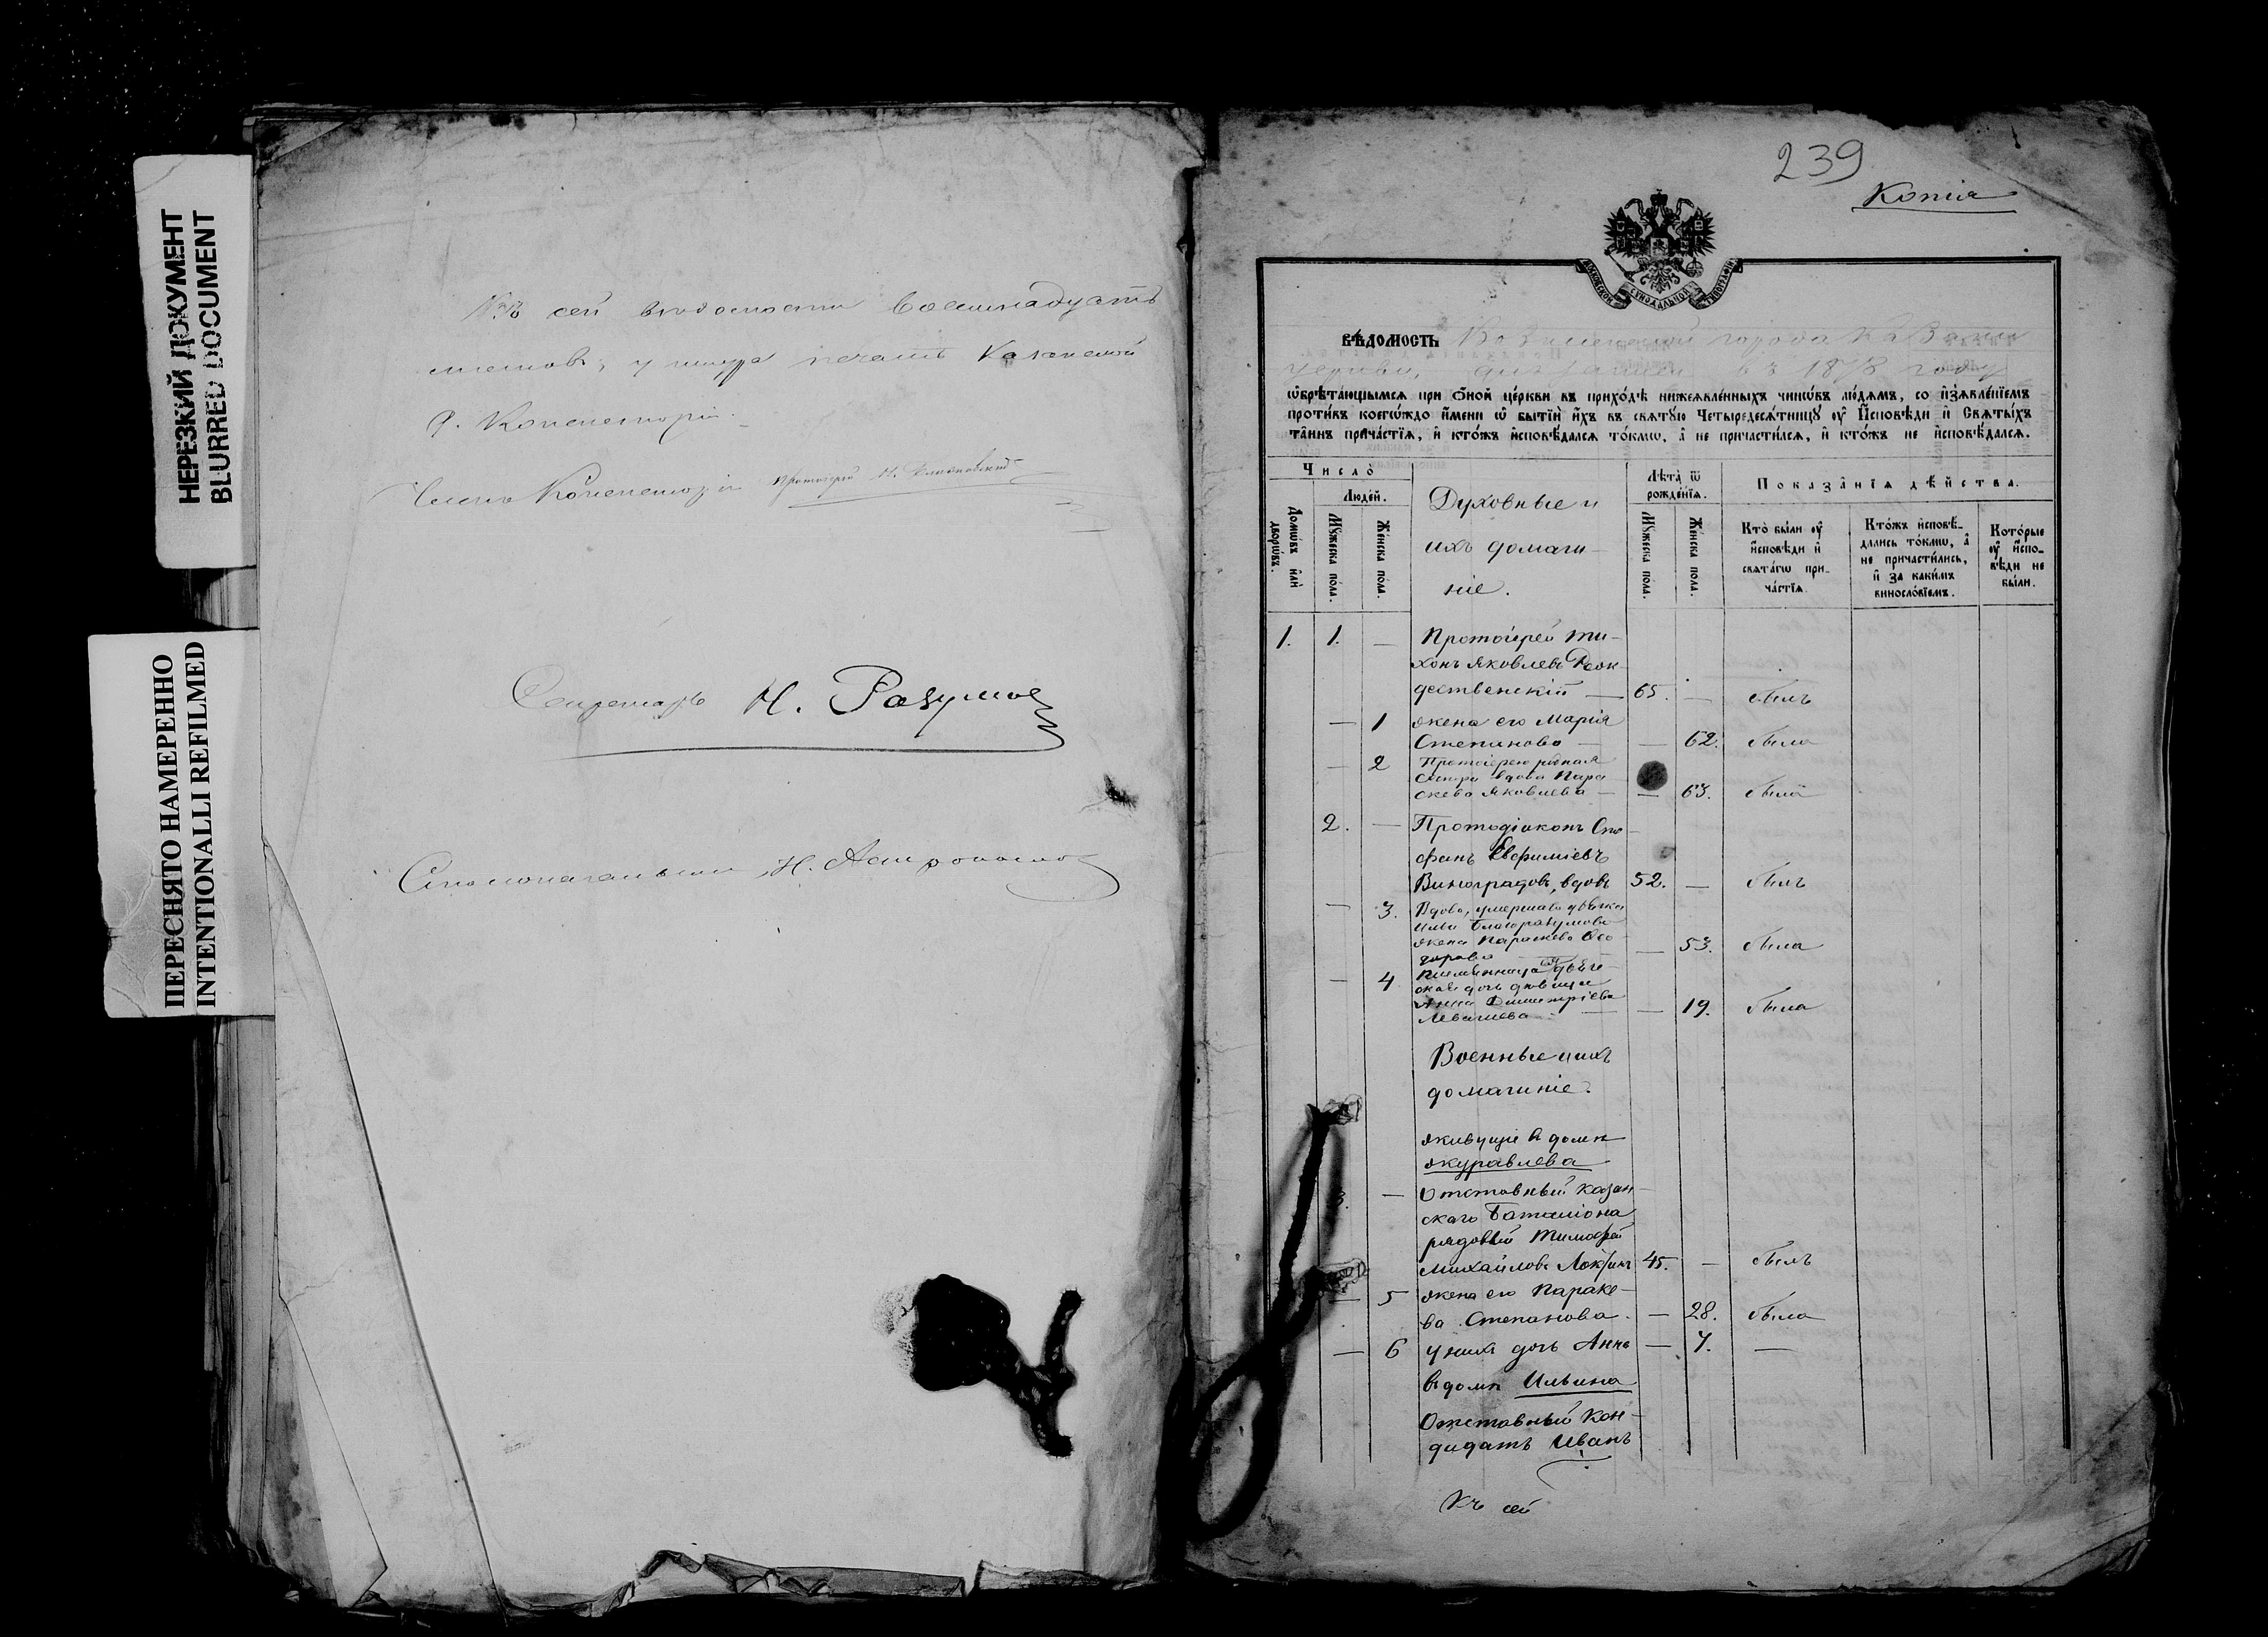 НЕРЕЗКИЙ ДОКУМЕНТ
BLURRED DOCUMENT
ПЕРЕСНЯТО НАМЕРЕННО
INTENTIONALLI REFILMED
сей вѣдомости восемнадцать
листовъ, у шнура печать Казанской
Д. Консисторіи.
Членъ Консисторіи Протоіерей
Секретарь Н. Разумов
Столоначальникъ Н.
239
Копія
МОСКОВСКОЙ СУНОДАЛЬНОЙ ТИПОГРАФІИ
ВѢДОМОСТЬ города Казани
церкви, въ 1878 году
ѡ҆брѣта́ющымсѧ при ѻ҆́ной це́ркви въ прихо́дѣ нижеꙗвле́нныхъ чинѡ́въ лю́демъ, со и҆з̾ѧвле́нїемъ
проти́въ коегѡ́ждо и҆́мени ѡ҆ бытїѝ и҆́хъ въ свѧту́ю Четыредесѧ́тницꙋ ᲂу҆ И҆́сповѣди и҆ Свѧты́хъ
та̑инъ прича́стїѧ, и҆ кто́жъ и҆сповѣ́далсѧ то́кмѡ, а҆ не причасти́лсѧ, и҆ кто́жъ не и҆сповѣ́далсѧ.
Число̀
Люде́й.
Домѡ́въ и҆лѝ дворѡ́въ.
Мꙋ́жеска по́ла.
Же́нска по́ла.
Духовные и
ихъ домаш-
ніе.
Лѣта̀ ѿ рожде́нїѧ.
Мꙋ́жеска по́ла.
Же́нска по́ла.
Показа̑нїѧ дѣ́йства.
Кто̀ бы́ли ᲂу҆ и҆́сповѣди и҆ свѧта́гѡ при-ча́стїѧ.
Кто́жъ и҆сповѣ́-дались то́кмѡ, а҆ не причасти́лись, и҆ за каки́мъ виносло́вїемъ.
Кото́рые ᲂу҆ и҆́спо-вѣди не бы́ли.
1. 1. — Протоіерей Ти-
хонъ Яковлевъ Рож-
дественскій — 65. — былъ
— 1 жена его Марія
Степанова — — 62. была
— 2 Протоіерею родная
сестра вдова Пара
скева Яковлева — — 63. была
2. — Протодіаконъ Сте-
фанъ Евфиміевъ
Виноградовъ, вдовъ 52. — былъ
— 3. Вдова, умершаго дьячка
Благоразумова
жена Параскева Ѳео-
дорова — — 53. была
— 4 племянница
дочь дѣвица
Анна Димитріева
— — 19. была
Военные и ихъ
домашніе.
живущіе въ домѣ
Журавлева
3. — Отставный Казан-
скаго баталіона
рядовой Тимофей
Михайловъ 45. — былъ
— 5 жена его Параске-
ва Степанова. — 28. была
— 6 у нихъ дочь Анна — 7. —
въ домѣ Ильина
Отставный Кан-
дидатъ Иванъ
Къ сей